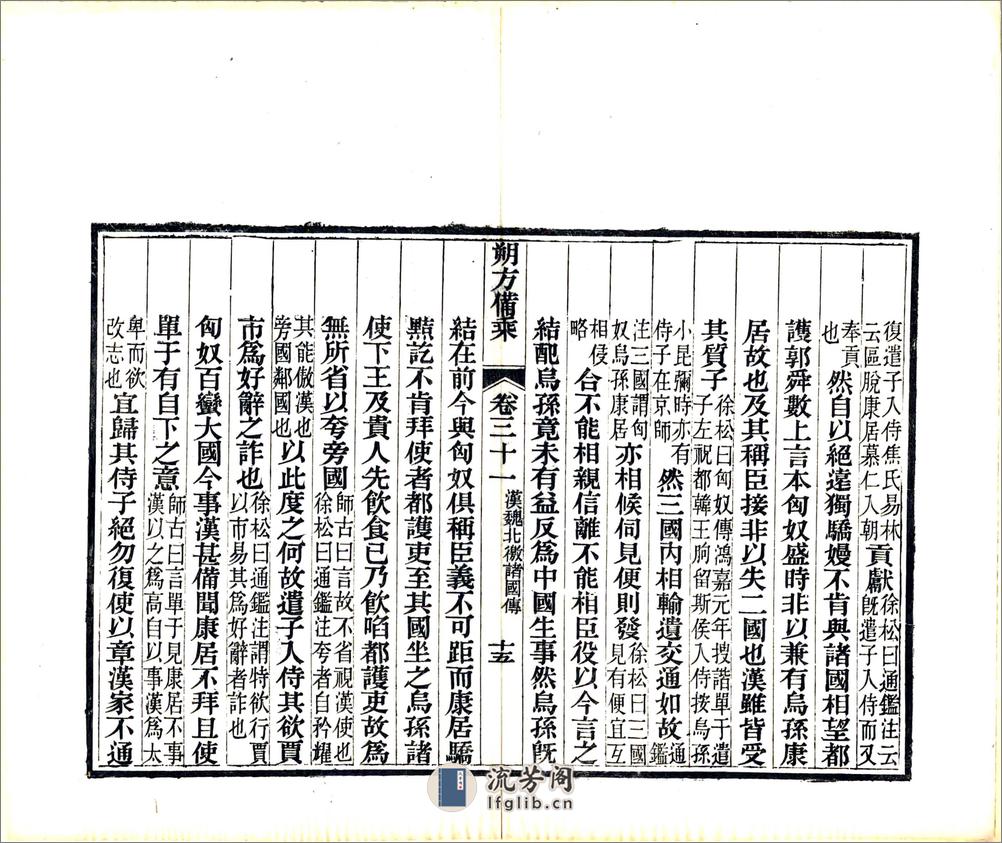 復遣子入侍焦氏易林云區脫康居慕仁入朝貢獻徐松曰通鑑注云旣遣子入侍而又
奉貢也然自以絕遠獨驕嫚不肯與諸國相望都
護郭舜數上言本匈奴盛時非以兼有烏孫康
居故也及其稱臣接非以失二國也漢雖皆受
其質子徐松曰匈奴傳鴻嘉元年搜諧單于遣子左祝都韓王朐留斯侯入侍按烏孫
小昆彌時亦有侍子在京師然三國內相輸遺交通如故通鑑
注三國謂匈奴烏孫康居亦相候伺見便則發徐松曰三國見有便宜互
相侵略合不能相親信離不能相臣役以今言之
結配烏孫竟未有益反為中國生事然烏孫旣
朔方備乘 卷三十一 漢魏北徼諸國傳 十五
結在前今與匈奴俱稱臣義不可距而康居驕
黠訖不肯拜使者都護吏至其國坐之烏孫諸
使下王及貴人先飲食已乃飲啗都護吏故爲
無所省以夸旁國師古曰言故不省視漢使也徐松曰通鑑注夸者自矜耀
其能傲漢也旁國鄰國也以此度之何故遣子入侍其欲賈
市爲好辭之詐也徐松曰通鑑注謂特欲行賈以市易其爲好辭者詐也
匈奴百蠻大國今事漢甚備聞康居不拜且使
單于有自下之意師古曰言單于見康居不事漢以之爲高自以事漢爲太
卑而欲改志也宜歸其侍子絕勿復使以章漢家不通
流芳阁
lfglib.cn